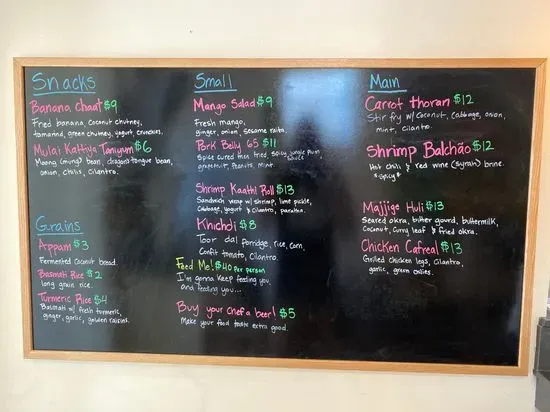 Snacks
Banana chaat $9
Fried banana, coconut chutney,
tamarind, green chutney, yogurt, crunchies.
Mulai Kattiya Taniyum $6
Moong (mung) bean, dragon tongue bean,
onion, chilis, cilantro.
Grains
Appam $3
Fermented coconut bread.
Basmati Rice $2
long grain rice.
Turmeric Rice $4
Basmati w/ fresh turmeric,
ginger, garlic, golden raisins.
Small
Mango Salad $9
Fresh mango,
ginger, onion, sesame raita.
Pork Belly 65 $11
Spice cured then fried, spicy jungle plum sauce
grapefruit, peanuts, mint.
Shrimp Kaathi Roll $13
Sandwich wrap w/ shrimp, lime pickle,
Cabbage, yogurt & cilantro, paratha.
Khichdi $8
Toor dal porridge, rice, corn,
Confit tomato, Cilantro.
Feed Me! $40 per person
I'm gonna keep feeding you
and feeding you...
Buy your chef a beer! $5
Make your food taste extra good.
Main
Carrot Thoran $12
Stir fry w/ coconut, cabbage, onion,
mint, cilantro.
Shrimp Balchão $12
Hot chili & red wine (syrah) brine.
*Spicy*
Majjige Huli $13
Seared okra, bitter gourd, buttermilk,
Coconut, curry leaf & fried okra.
Chicken Cafreal $13
Grilled Chicken legs, cilantro,
garlic, green chilies.